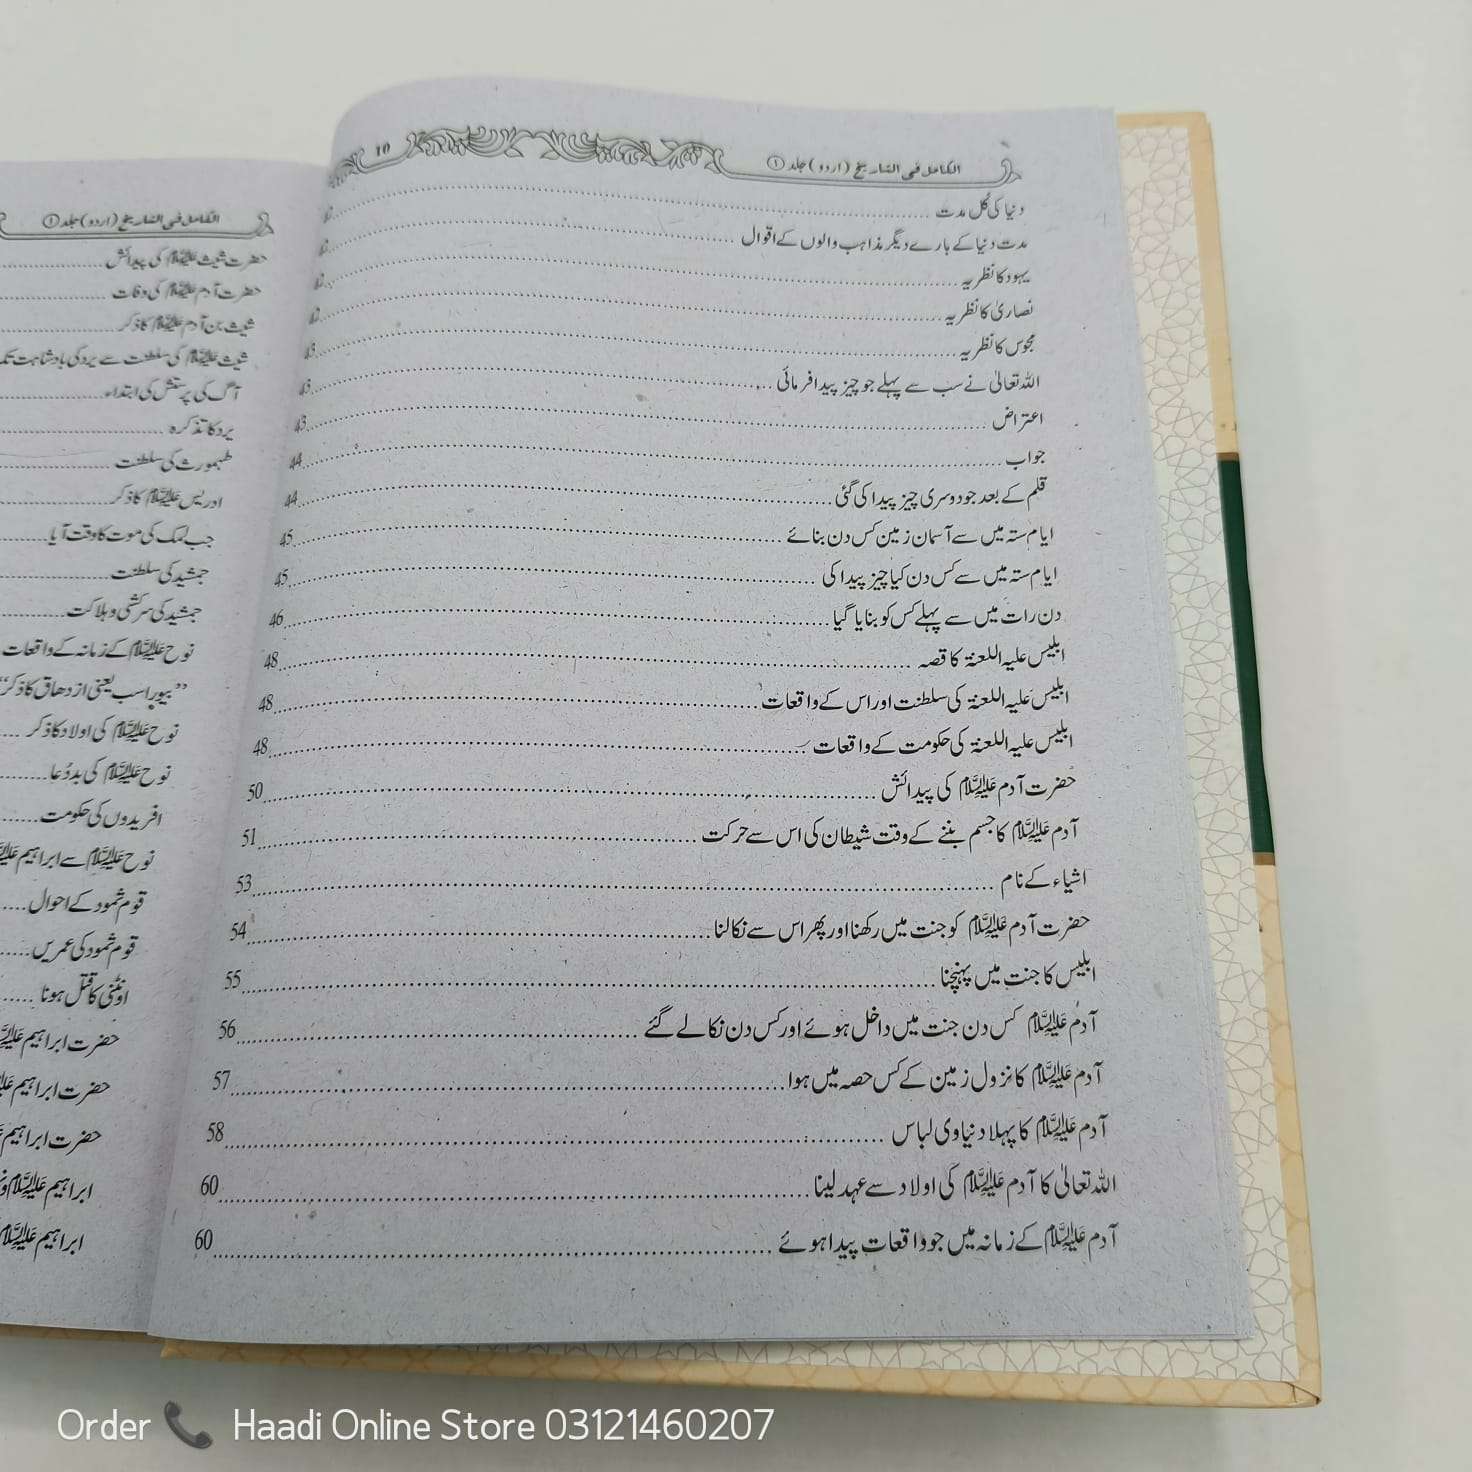 الکامل فی التاریخ (اردو) جلد ①
10
دنیا کی کُل مدت
مدت دنیا کے بارے دیگر مذاہب والوں کے اقوال
یہود کا نظریہ
نصاریٰ کا نظریہ
مجوس کا نظریہ
اللہ تعالیٰ نے سب سے پہلے جو چیز پیدا فرمائی ........ 43
اعتراض ........ 43
جواب ........ 44
قلم کے بعد جو دوسری چیز پیدا کی گئی ........ 44
ایام ستہ میں سے آسمان زمین کس دن بنائے ........ 45
ایام ستہ میں سے کس دن کیا چیز پیدا کی ........ 45
دن رات میں سے پہلے کس کو بنایا گیا ........ 46
ابلیس علیہ اللعنۃ کا قصہ ........ 48
ابلیس علیہ اللعنۃ کی سلطنت اور اس کے واقعات ........ 48
ابلیس علیہ اللعنۃ کی حکومت کے واقعات ........ 48
حضرت آدم علیہ السلام کی پیدائش ........ 50
آدم علیہ السلام کا جسم بننے کے وقت شیطان کی اس سے حرکت ........ 51
اشیاء کے نام ........ 53
حضرت آدم علیہ السلام کو جنت میں رکھنا اور پھر اس سے نکالنا ........ 54
ابلیس کا جنت میں پہنچنا ........ 55
آدم علیہ السلام کس دن جنت میں داخل ہوئے اور کس دن نکالے گئے ........ 56
آدم علیہ السلام کا نزول زمین کے کس حصہ میں ہوا ........ 57
آدم علیہ السلام کا پہلا دنیاوی لباس ........ 58
اللہ تعالیٰ کا آدم علیہ السلام کی اولاد سے عہد لینا ........ 60
آدم علیہ السلام کے زمانہ میں جو واقعات پیدا ہوئے ........ 60
الکامل فی التاریخ (اردو) جلد ①
حضرت شیث علیہ السلام کی پیدائش
حضرت آدم علیہ السلام کی وفات
شیث بن آدم علیہ السلام کا ذکر
شیث علیہ السلام کی سلطنت سے یرد کی بادشاہت تک
آگ کی پرستش کی ابتداء
یرد کا تذکرہ
طہمورث کی سلطنت
ادریس علیہ السلام کا ذکر
جب لمک کی موت کا وقت آیا
جمشید کی سلطنت
جمشید کی سرکشی و ہلاکت
نوح علیہ السلام کے زمانہ کے واقعات
”بیوراسب یعنی ازدهاق کا ذکر“
نوح علیہ السلام کی اولاد کا ذکر
نوح علیہ السلام کی بددُعا
افریدوں کی حکومت
نوح علیہ السلام سے ابراہیم
قوم ثمود کے احوال
قوم ثمود کی عمریں
اونٹنی کا قتل ہونا
حضرت ابراہیم
حضرت ابراہیم
حضرت ابراہیم
ابراہیم علیہ السلام
ابراہیم علیہ السلام
Order 📞 Haadi Online Store 03121460207